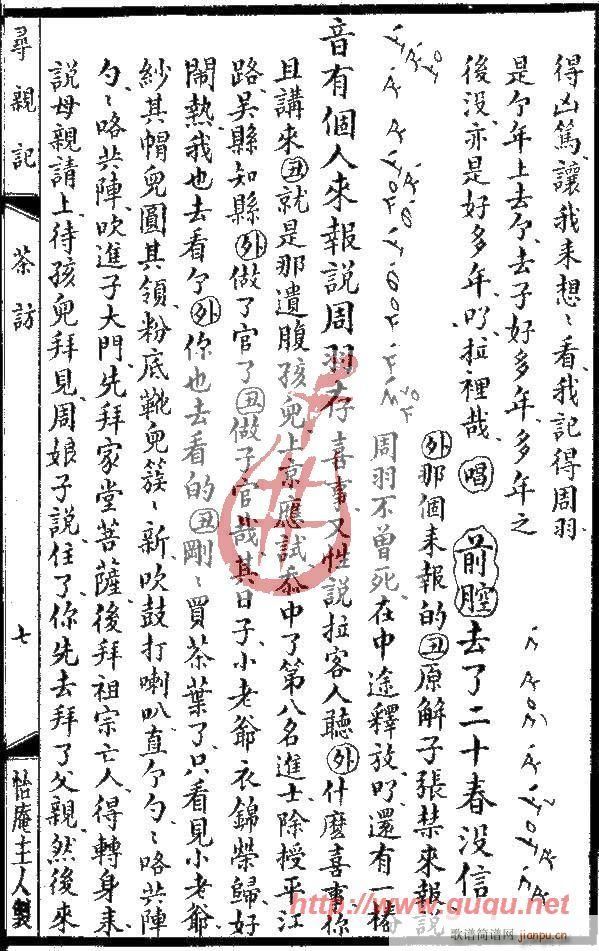 得凶篤、讓我来想〻看、我記得周羽
是个年上去个、去子好多年、多年之
後没、亦是好多年、叮、拉裡哉、唱 前腔 去了二十春没信
外 那個来報的 丑 原解子張禁来報說
周羽不曾死、在中途釋放、叮、還有一樁
音有個人來報說周羽存 喜事、又性說拉客人聽 外 什麽喜事、你
且講来 丑 就是那遺腹孩兒上京應試忝中了第八名進士除授平江
路吴縣知縣 外 做了官了 丑 做子官哉、其日子、小老爺衣錦榮歸好
鬧熱、我也去看个 外 你也去看的 丑 剛〻買茶葉了、只看見小老爺
紗其帽兒圓其領、粉底靴兒簇〻新、吹鼓打喇叭、直个勺〻咯共陣
勺〻咯共陣、吹進子大門、先拜家堂菩薩、後拜祖宗亡人、得轉身来
說母親請上、待孩兒拜見、周娘子說、住了、你先去拜了父親、然後来
尋親記
茶訪
七
怡庵主人製
http://www.guqu.net
歌谱简谱网
jianpu.cn